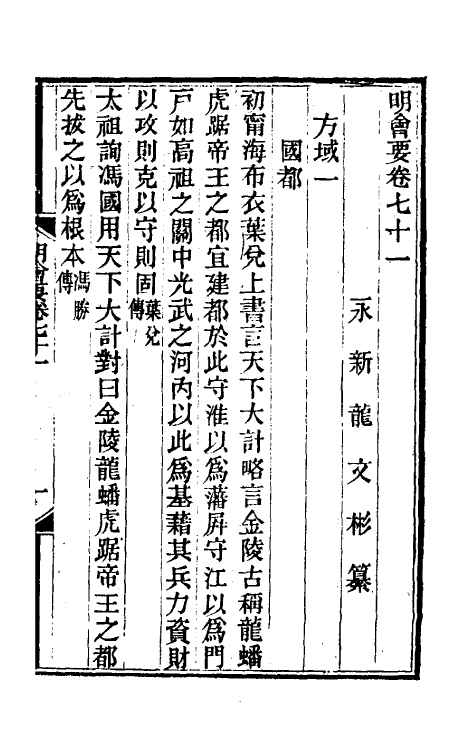 明會要卷七十一
永新龍文彬纂
方域一
國都
初甯海布衣葉兌上書言天下大計略言金陵古稱龍蟠
虎踞帝王之都宜建都於此守淮以為藩屏守江以為門
戸如高祖之關中光武之河內以此為基藉其兵力資財
以攻則克以守則固葉兌傳
太祖詢馮國用天下大計對曰金陵龍蟠虎踞帝王之都
先拔之以為根本馮勝傳
明會要卷七十一
一